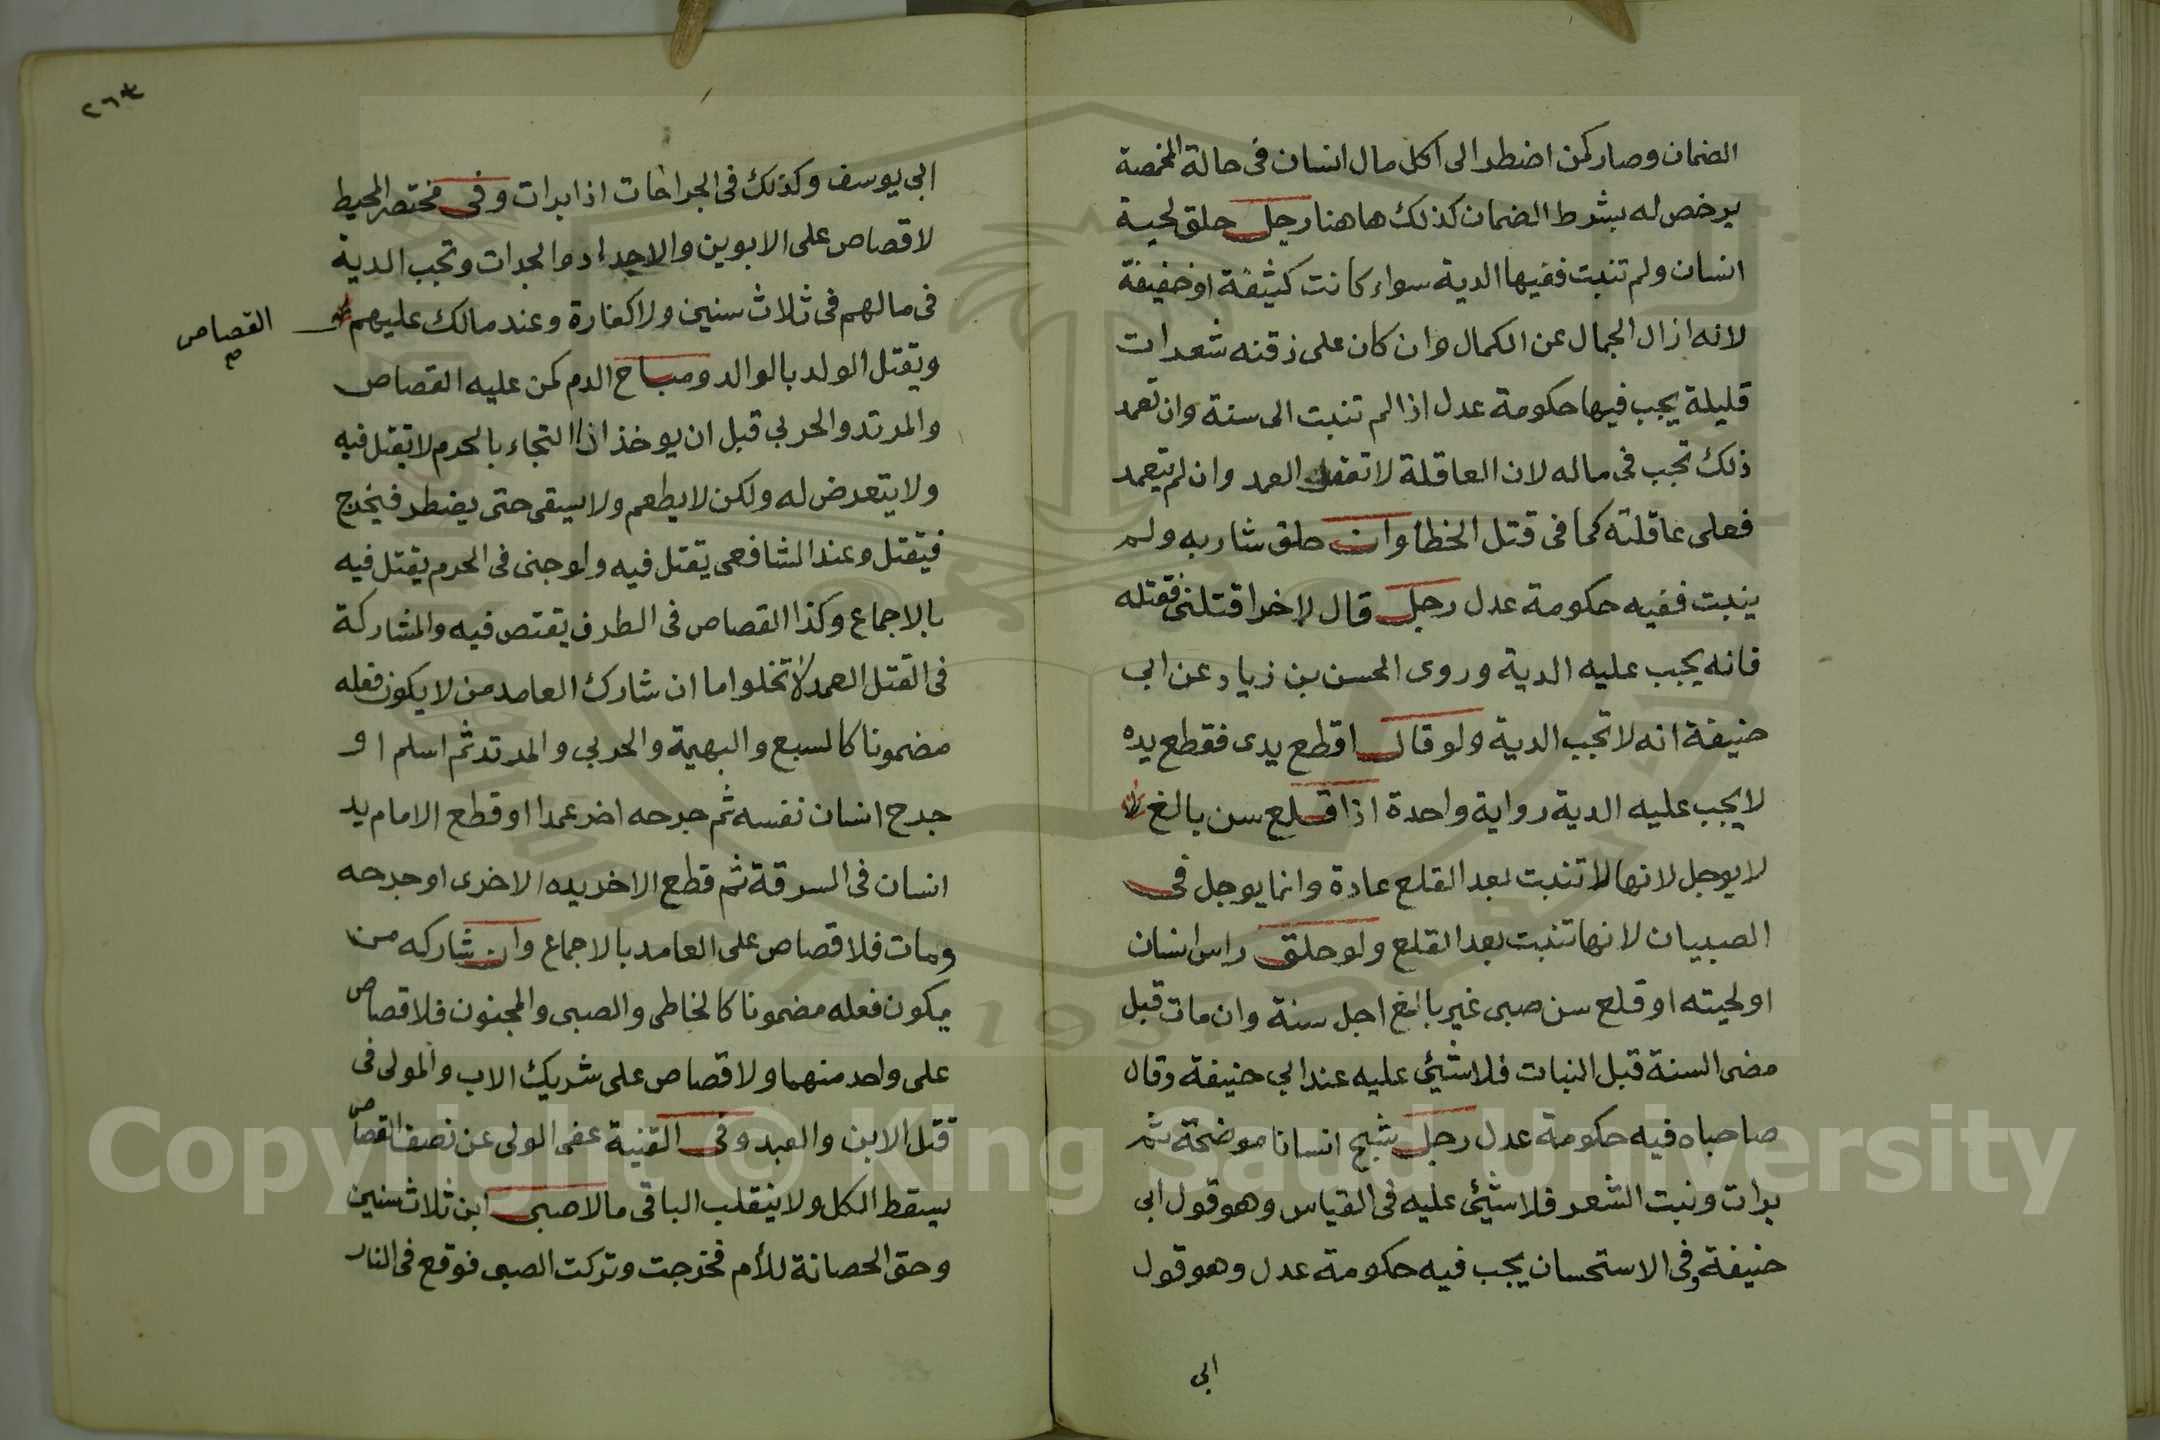 الضمان وصار كمن اضطر الى اكل مال انسان فى حالة المخمصة
يرخص له بشرط الضمان كذلك هاهنا رجل حلق لحية
انسان ولم تنبت ففيها الدية سواء كانت كثيفة او خفيفة
لانه ازال الجمال عن الكمال وان كان على ذقنه شعرات
قليلة يجب فيها حكومة عدل اذا لم تنبت الى سنة وان تعمد
ذلك تجب فى ماله لان العاقلة لا تعقل العمد وان لم يتعمد
فعلى عاقلته كما فى قتل الخطا وان حلق شاربه ولم
ينبت ففيه حكومة عدل رجل قال لاخر اقتلنى فقتله
فانه يجب عليه الدية وروى الحسن بن زياد عن ابى
حنيفة انه لا تجب الدية ولو قال اقطع يدى فقطع يده
لا يجب عليه الدية رواية واحدة اذا قلع سن بالغ
لا يوجل لانها لا تنبت بعد القلع عادة وانما يوجل فى
الصبيان لانها تنبت بعد القلع ولو حلق راس انسان
او لحيته او قلع سن صبى غير بالغ اجل سنة وان مات قبل
مضى السنة قبل النبات فلا شيئ عليه عند ابي حنيفة وقال
صاحباه فيه حكومة عدل رجل شج انسانا موضحة ثم
برات ونبت الشعر فلا شيئ عليه فى القياس وهو قول ابى
حنيفة وفى الاستحسان يجب فيه حكومة عدل وهو قول
ابى
٢٦٣
ابي يوسف وكذلك فى الجراحات اذا برات وفى مختصر المحيط
لا قصاص على الابوين والاجداد والجدات وتجب الدية
فى مالهم فى ثلاث سنين ولا كفارة وعند مالك عليهم
القصاص
ويقتل الولد بالوالد ومباح الدم كمن عليه القصاص
والمرتد والحربي قبل ان يوخذ اذا التجاء بالحرم لا يقتل فيه
ولا يتعرض له ولكن لا يطعم ولا يسقى حتى يضطر فيخرج
فيقتل وعند الشافعى يقتل فيه ولو جنى فى الحرم يقتل فيه
بالاجماع وكذا القصاص فى الطرف يقتص فيه والمشاركة
فى القتل العمد لا تخلوا اما ان شارك العامد من لا يكون فعله
مضمونا كالسبع والبهيمة والحربي والمرتد ثم اسلم او
جرح انسان نفسه ثم جرحه اخر عمدا او قطع الامام يد
انسان فى السرقة ثم قطع الاخر يده الاخرى او جرحه
ومات فلا قصاص على العامد بالاجماع وان شاركه من
يكون فعله مضمونا كالخاطى والصبى والمجنون فلا قصاص
على واحد منهما ولا قصاص على شريك الاب والمولى فى
قتل الابن والعبد وفى القنية عفى الولى عن نصف القصاص
يسقط الكل ولا ينقلب الباقى مالا صبى ابن ثلاث سنين
وحق الحصانة للأم فخرجت وتركت الصبى فوقع فى النار
Copyright © King Saud University
1957